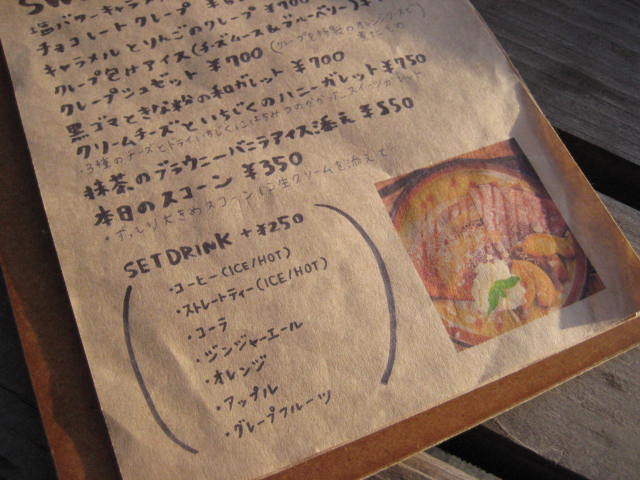 SW
塩バターキャラメル
チョコレートクレープ
キャラメルとりんごのクレープ ¥700
クレープ包みアイス(チーズムース&ブルーベリー)
クレープシュゼット ¥700
黒ゴマときな粉の和ガレット ¥700
クリームチーズといちじくのハニーガレット ¥750
・3種のチーズとドライいちじくにはちみつの
抹茶のブラウニーバニラアイス添え ¥550
本日のスコーン ¥350
・ずっしり大きめスコーンに生クリームを添えて
SET DRINK +¥250
・コーヒー(ICE/HOT)
・ストレートティー(ICE/HOT)
・コーラ
・ジンジャーエール
・オレンジ
・アップル
・グレープフルーツ